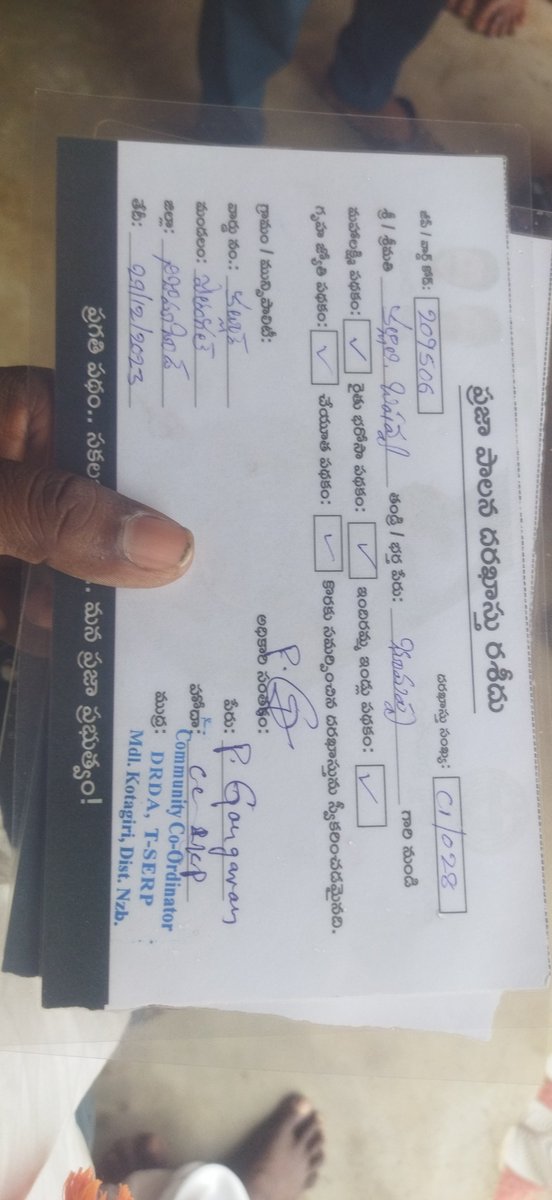 ప్రజా పాలన దరఖాస్తు రశీదు
దరఖాస్తు సంఖ్య: C1/028
జిపి / వార్డ్ కోడ్: 209506
శ్రీ / శ్రీమతి తండ్రి / భర్త పేరు: గారి నుండి
మహాలక్ష్మి పథకం: ✓ రైతు భరోసా పథకం: ✓ ఇందిరమ్మ ఇండ్లు పథకం: ✓
గృహ జ్యోతి పథకం: ✓ చేయూత పథకం: ✓ కొరకు సమర్పించిన దరఖాస్తును స్వీకరించడమైనది.
గ్రామం / మున్సిపాలిటీ:
వార్డు నం.:
మండలం:
జిల్లా:
తేదీ: 29/12/2023
అధికారి సంతకం:
పేరు: P. Gangaram
హోదా: CC
ముద్ర:
Community Co-Ordinator
DRDA, T-SERP
Mdl. Kotagiri, Dist. Nzb.
ప్రగతి పథం.. సకల .. మన ప్రజా ప్రభుత్వం!